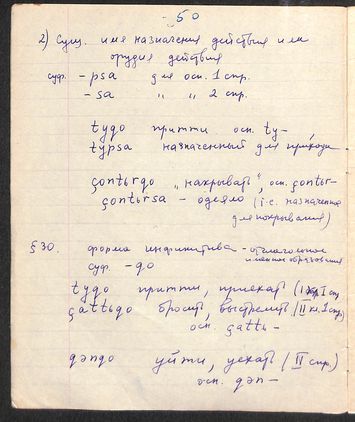 - 50
2) Сущ. имя назначения действия или
орудия действия
суф. - psa для осн. 1 спр.
- sa " " 2 спр.
tyɡo притти осн. ty-
typsa назначенный для прихода
çontərɡo „накрывать", осн. çontər-
çontərsa - одеяло (i.e. назначение
для покрывания)
§ 30. форма инфинитива - отглагольное
именное образование
суф. - ɡo
tyɡo притти, приехать (I спр.
çattьɡo бросить, выстрелить (II кл. 1 спр.
осн. çattь -
qənɡo уйти, уехать (II спр.)
осн. qən -